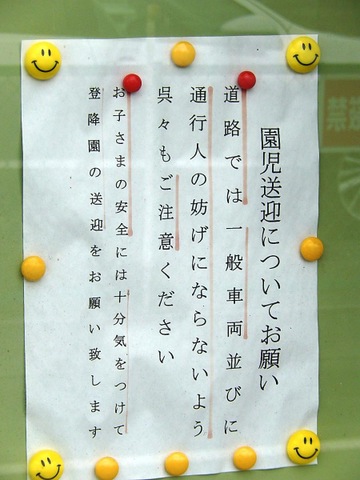 園児送迎についてお願い
道路では一般車両並びに
通行人の妨げにならないよう
呉々もご注意ください
お子さまの安全には十分気をつけて
登降園の送迎をお願い致します
禁